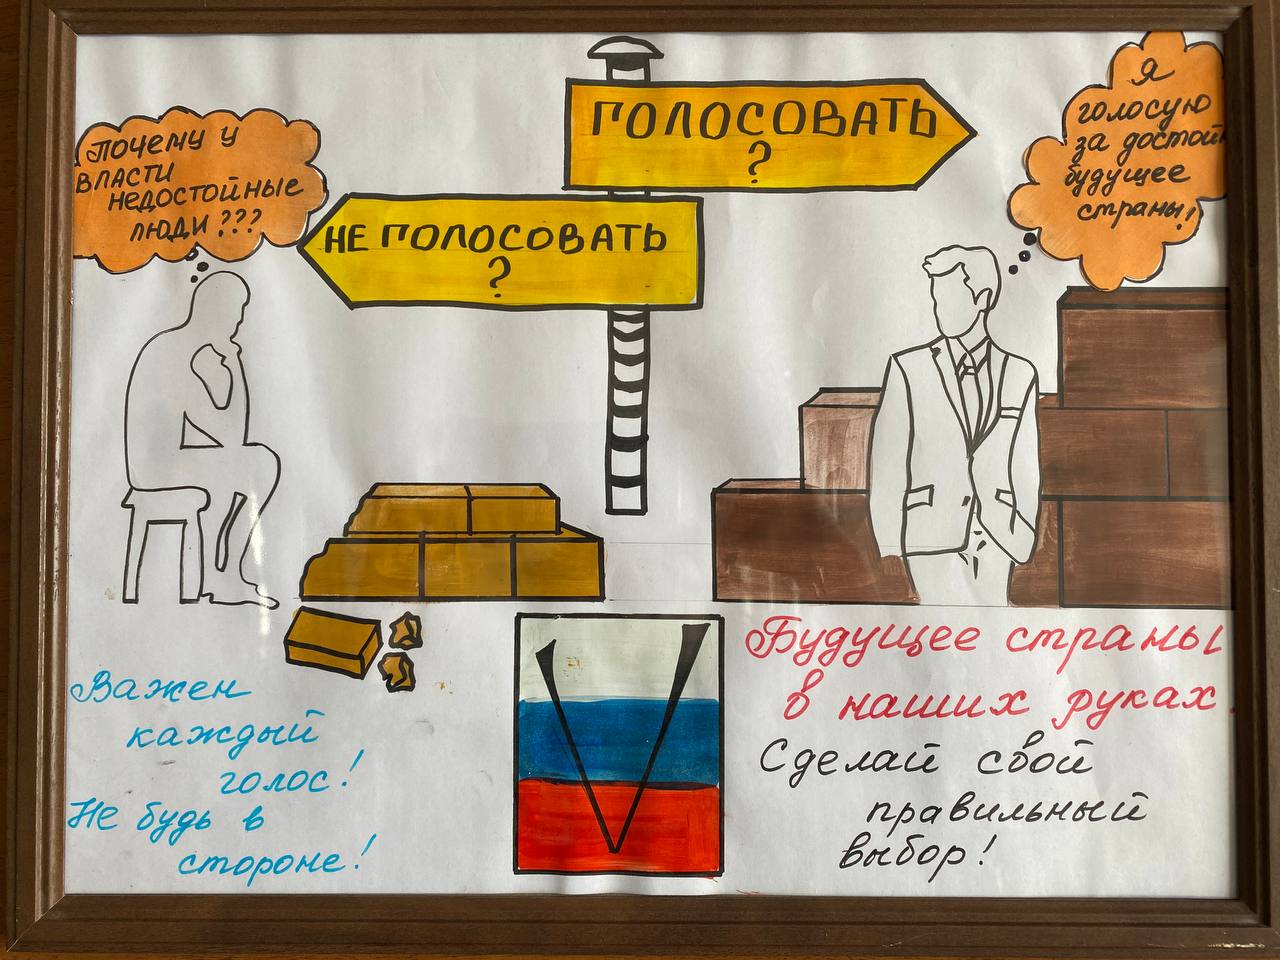 Почему у
власти
недостойные
люди???
ГОЛОСОВАТЬ
?
НЕ ГОЛОСОВАТЬ
?
Я
голосую
за достой
будущее
страны!
Важен
каждый
голос!
Не будь в
стороне!
V
Будущее страны
в наших руках.
Сделай свой
правильный
выбор!